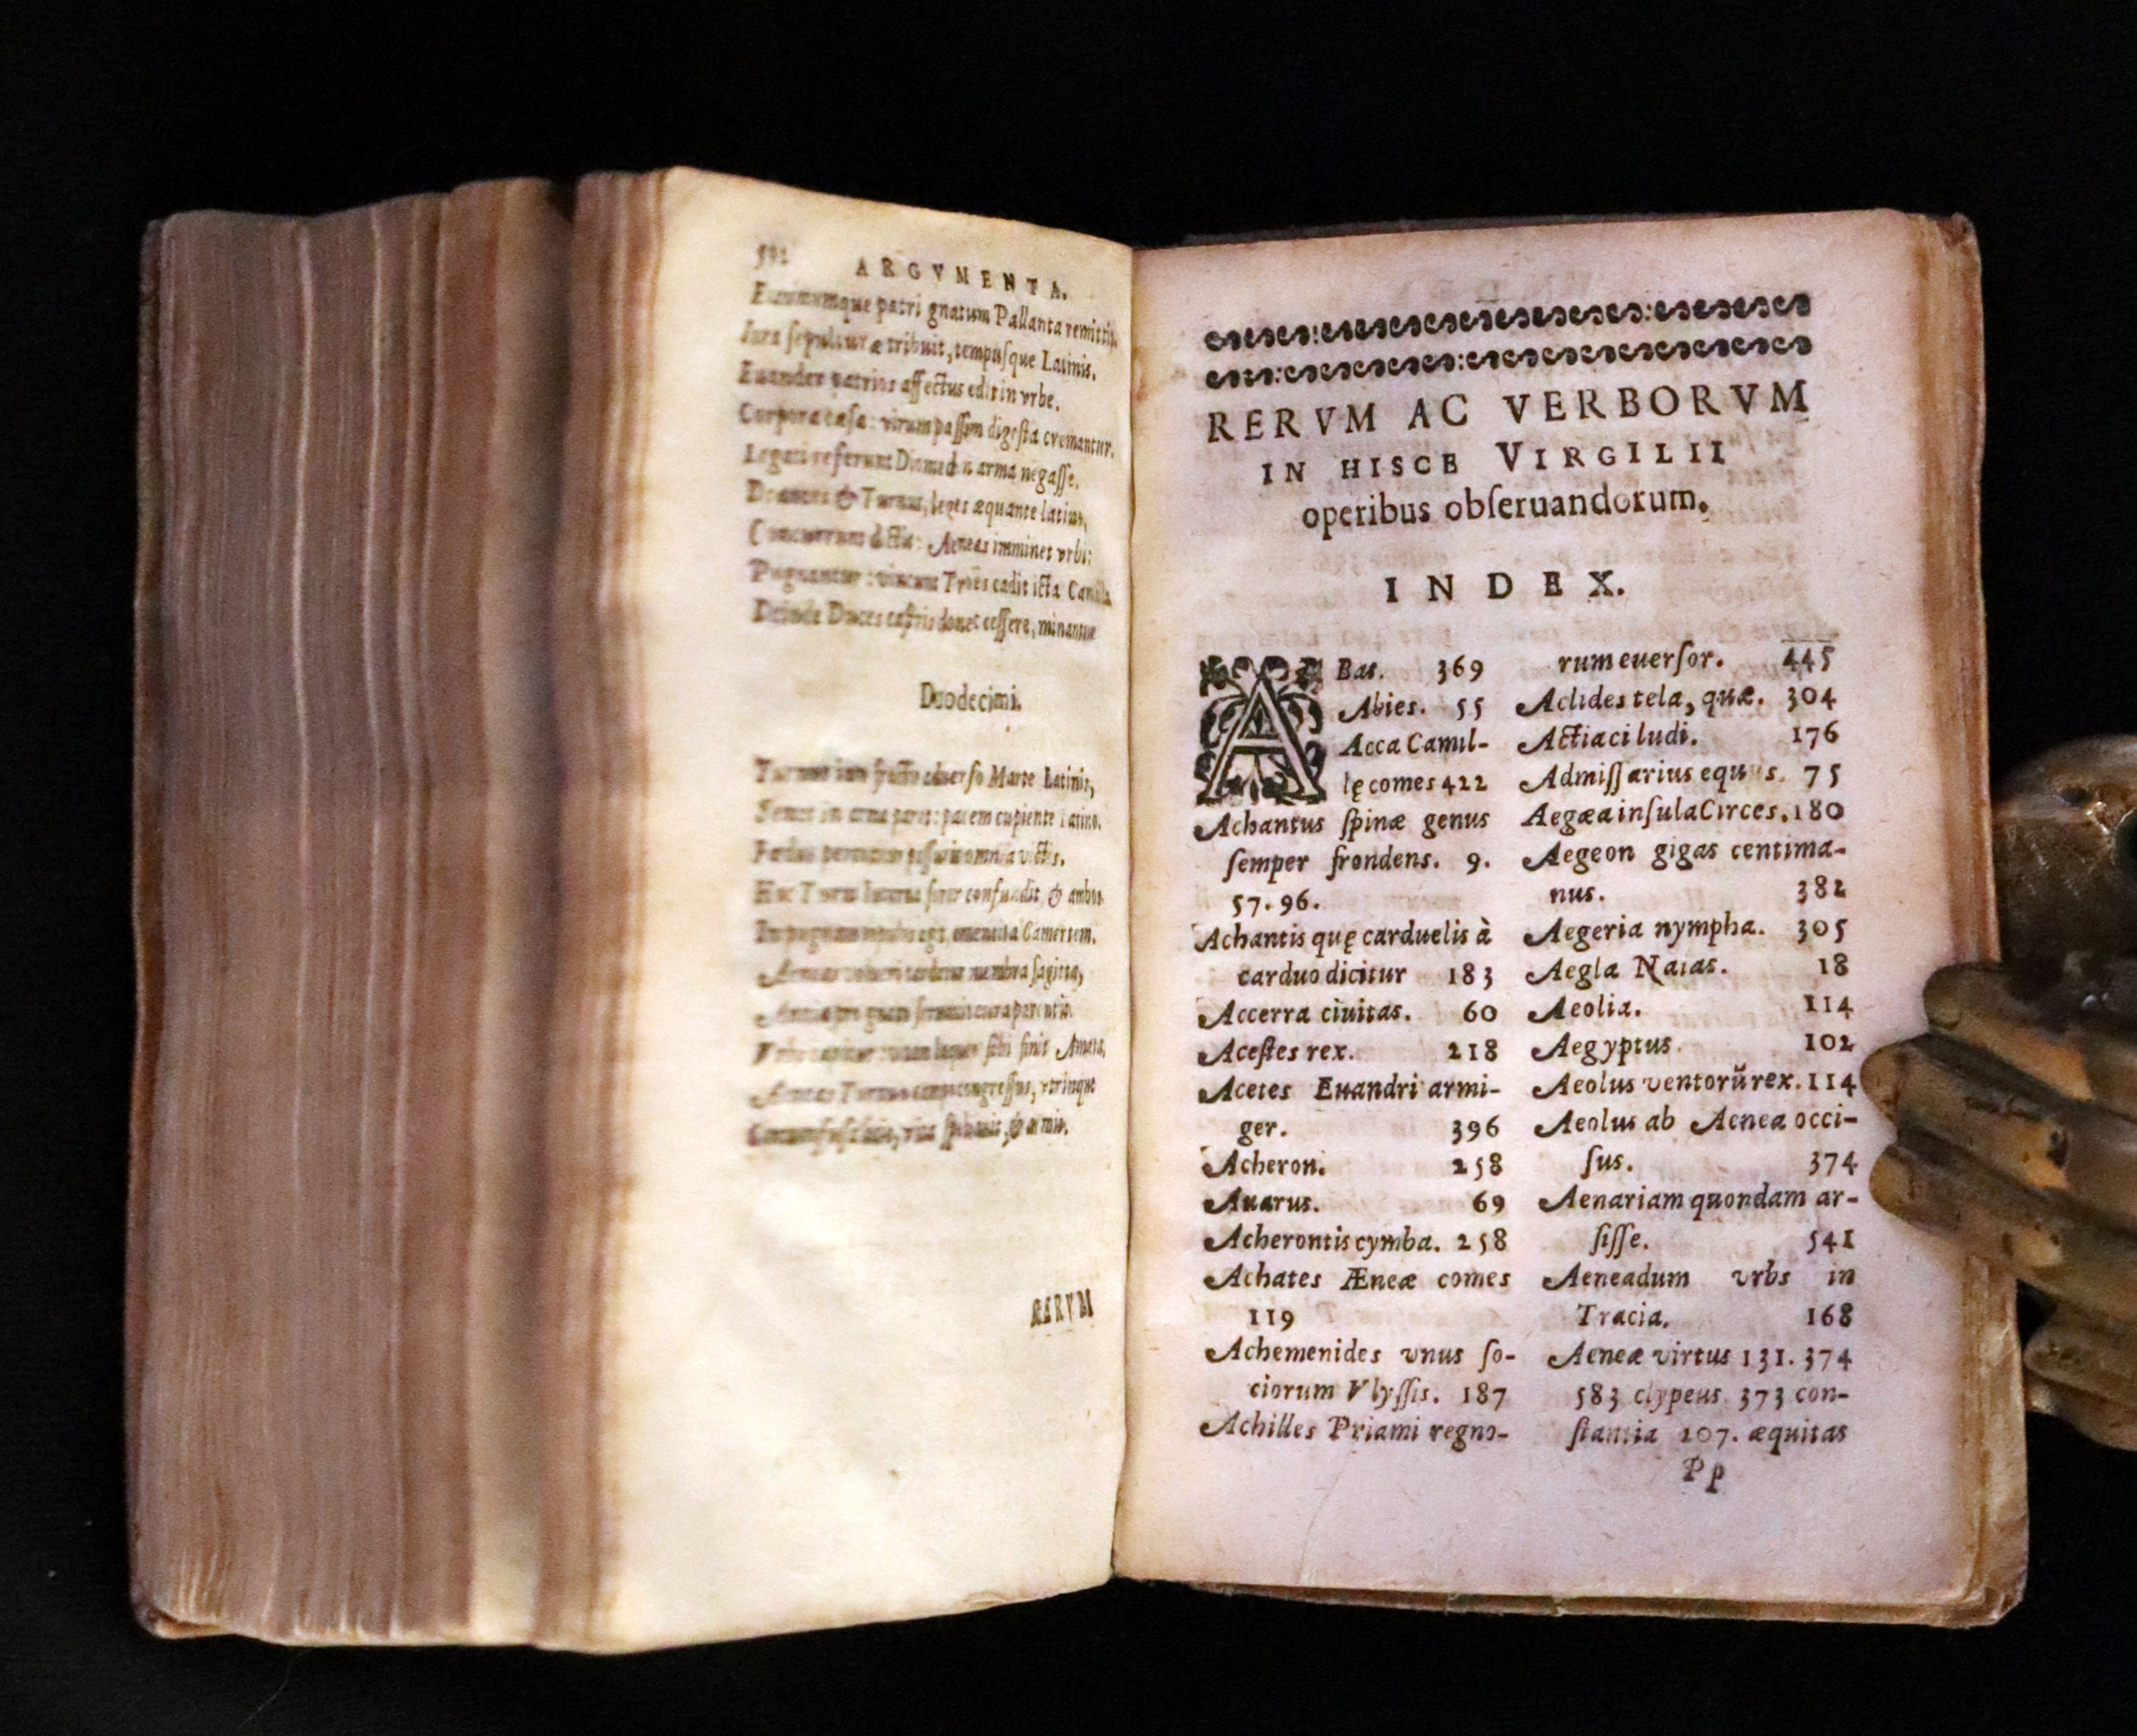 ARGVMENTA.
patri gnatum Pallanta remittit,
tribuit, tempuſque Latinis.
Euander patrios affectus edit in vrbe.
Corpora cæſa: virum paſſim digeſta cremantur.
Legati referunt Diomedis arma negaſſe.
Drances & Turnus, leges æquante latino,
Concurrunt dictis: Aeneas imminet vrbi:
Pugnantur: vincunt Troës cadit icta Camilla
Deinde Duces caſtris donec ceſſere, minantur
Duodecimi.
Turnus iam fracto aduerſo Marte Latinis,
in arma pacem cupiente Latino.
omnia victis.
Turni confundit, & ambos
Camertem.
membra ſagitta,
parentis.
ſibi finit Amata,
Aeneas Turnus congreſſus, vtrinque
RERVM
RERVM AC VERBORVM
IN HISCE VIRGILII
operibus obſeruandorum.
INDEX.
ABas. 369
Abies. 55
Acca Camil-
lę comes 422
Achantus ſpinæ genus
ſemper frondens. 9.
57. 96.
Achantis quę carduelis à
carduo dicitur 183
Accerra ciuitas. 60
Aceſtes rex. 218
Acetes Euandri armi-
ger. 396
Acheron. 258
Auarus. 69
Acherontis cymba. 258
Achates Æneæ comes
119
Achemenides vnus ſo-
ciorum Vlyſſis. 187
Achilles Priami regno-
rum euerſor. 445
Aclides tela, quæ. 304
Actiaci ludi. 176
Admiſſarius equus. 75
Aegæa inſula Circes. 180
Aegeon gigas centima-
nus. 382
Aegeria nympha. 305
Aegla Naias. 18
Aeolia. 114
Aegyptus. 102
Aeolus ventorũ rex. 114
Aeolus ab Aenea occi-
ſus. 374
Aenariam quondam ar-
ſiſſe. 541
Aeneadum vrbs in
Tracia. 168
Aeneæ virtus 131. 374
583 clypeus 373 con-
ſtantia 107. æquitas
Pp